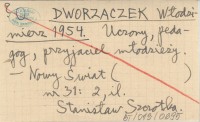 DWORZACZEK Włodzi-
mierz 1954. Uczony, peda-
gog, przyjaciel młodzieży.
— Nowy Świat (          )
nr 31: 2, il.
Stanisław Szczotka